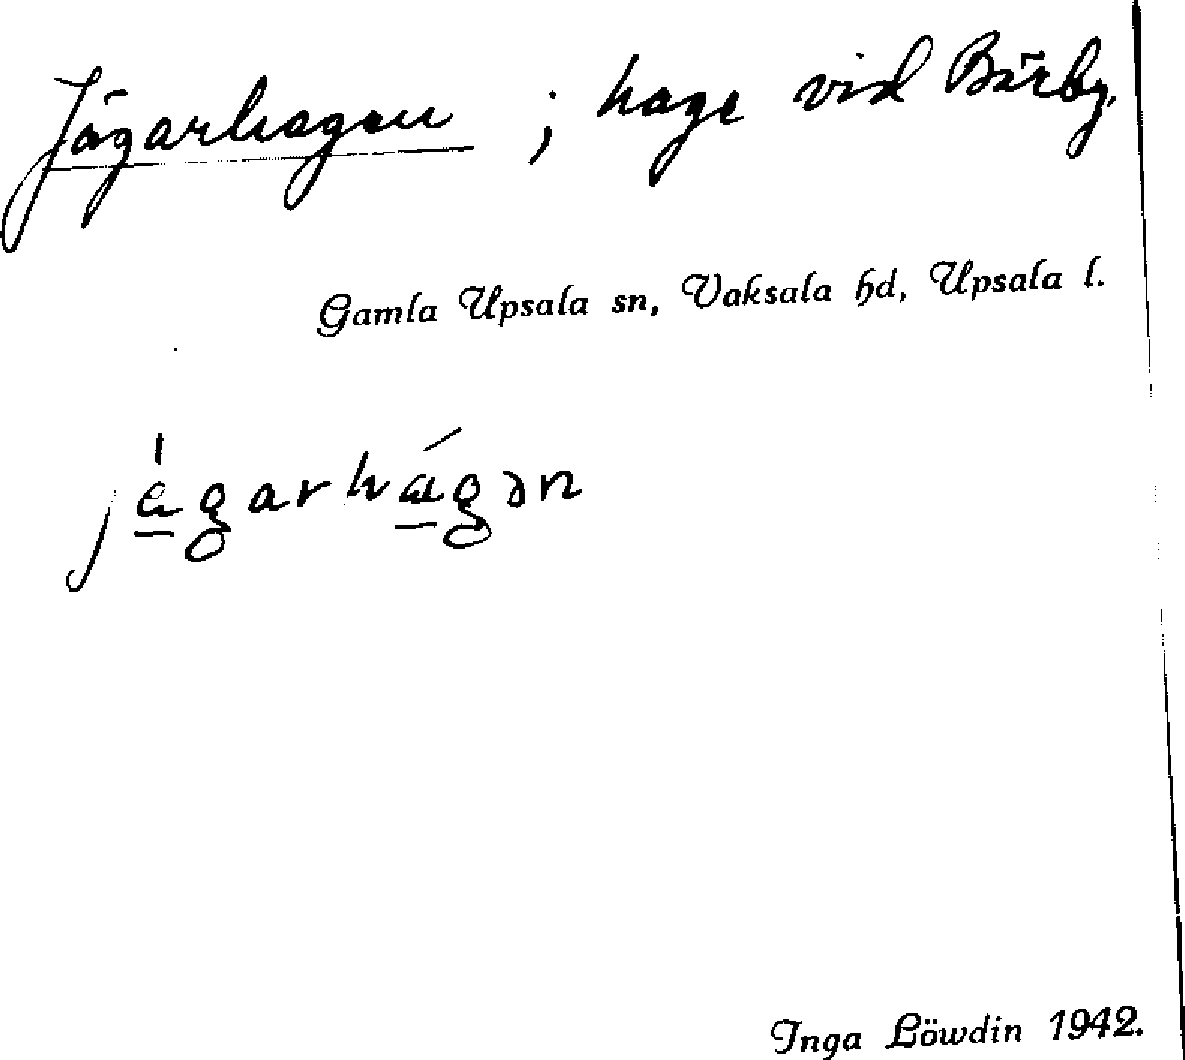 Jägarhagen ; hage vid Bärby.
Gamla Upsala sn, Vaksala hd, Upsala l.
Inga Löwdin 1942.